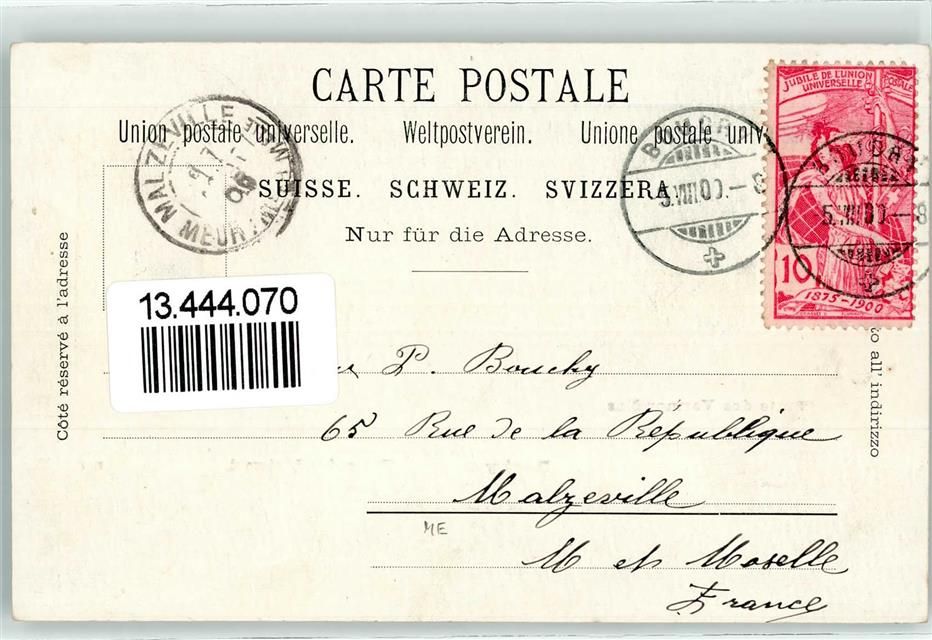 CARTE POSTALE
Union postale universelle. Weltpostverein. Unione postale univ
SUISSE. SCHWEIZ. SVIZZERA
Nur für die Adresse.
Côté réservé à l'adresse
to all' indirizzo
JUBILÉ DE L'UNION POSTALE
UNIVERSELLE
10
1875-1900
5.VIII.00.-8
5.VIII.00.-8
MALZEVILLE
MEUR
13.444.070
P. Bouchy
65 Rue de la République
Malzeville
ME
M et Moselle
France